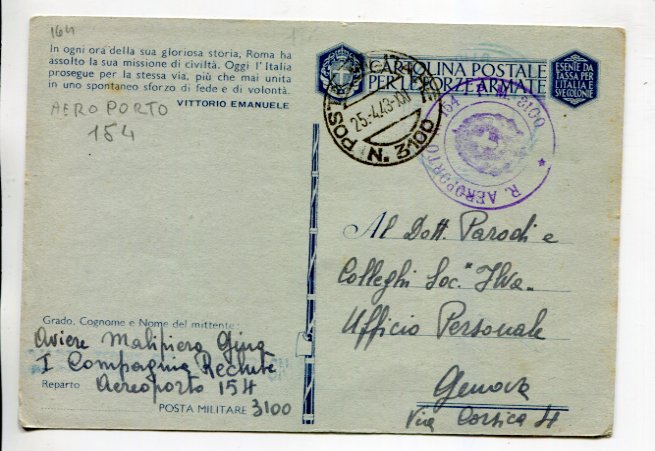 164
In ogni ora della sua gloriosa storia, Roma ha
assolto la sua missione di civiltà. Oggi l'Italia
prosegue per la stessa via, più che mai unita
in uno spontaneo sforzo di fede e di volontà.
VITTORIO EMANUELE
AEROPORTO
154
CARTOLINA POSTALE
PER LE FORZE ARMATE
ESENTE DA
TASSA PER
L'ITALIA E
SUE COLONIE
POSTA
25.4.43.XXI
N. 3100
R. AEROPORTO 154 P.M. 3100
Al Dott. Parodi e
Colleghi Soc. "Ilva"
Ufficio Personale
Genova
Via Corsica 4
Grado, Cognome e Nome del mittente:
Aviere Malipiero Gino
I Compagnia Reclute
Reparto Aereoporto 154
POSTA MILITARE 3100